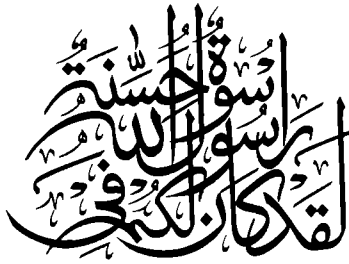 لقد كان لكم في
رسول الله
أسوة حسنة